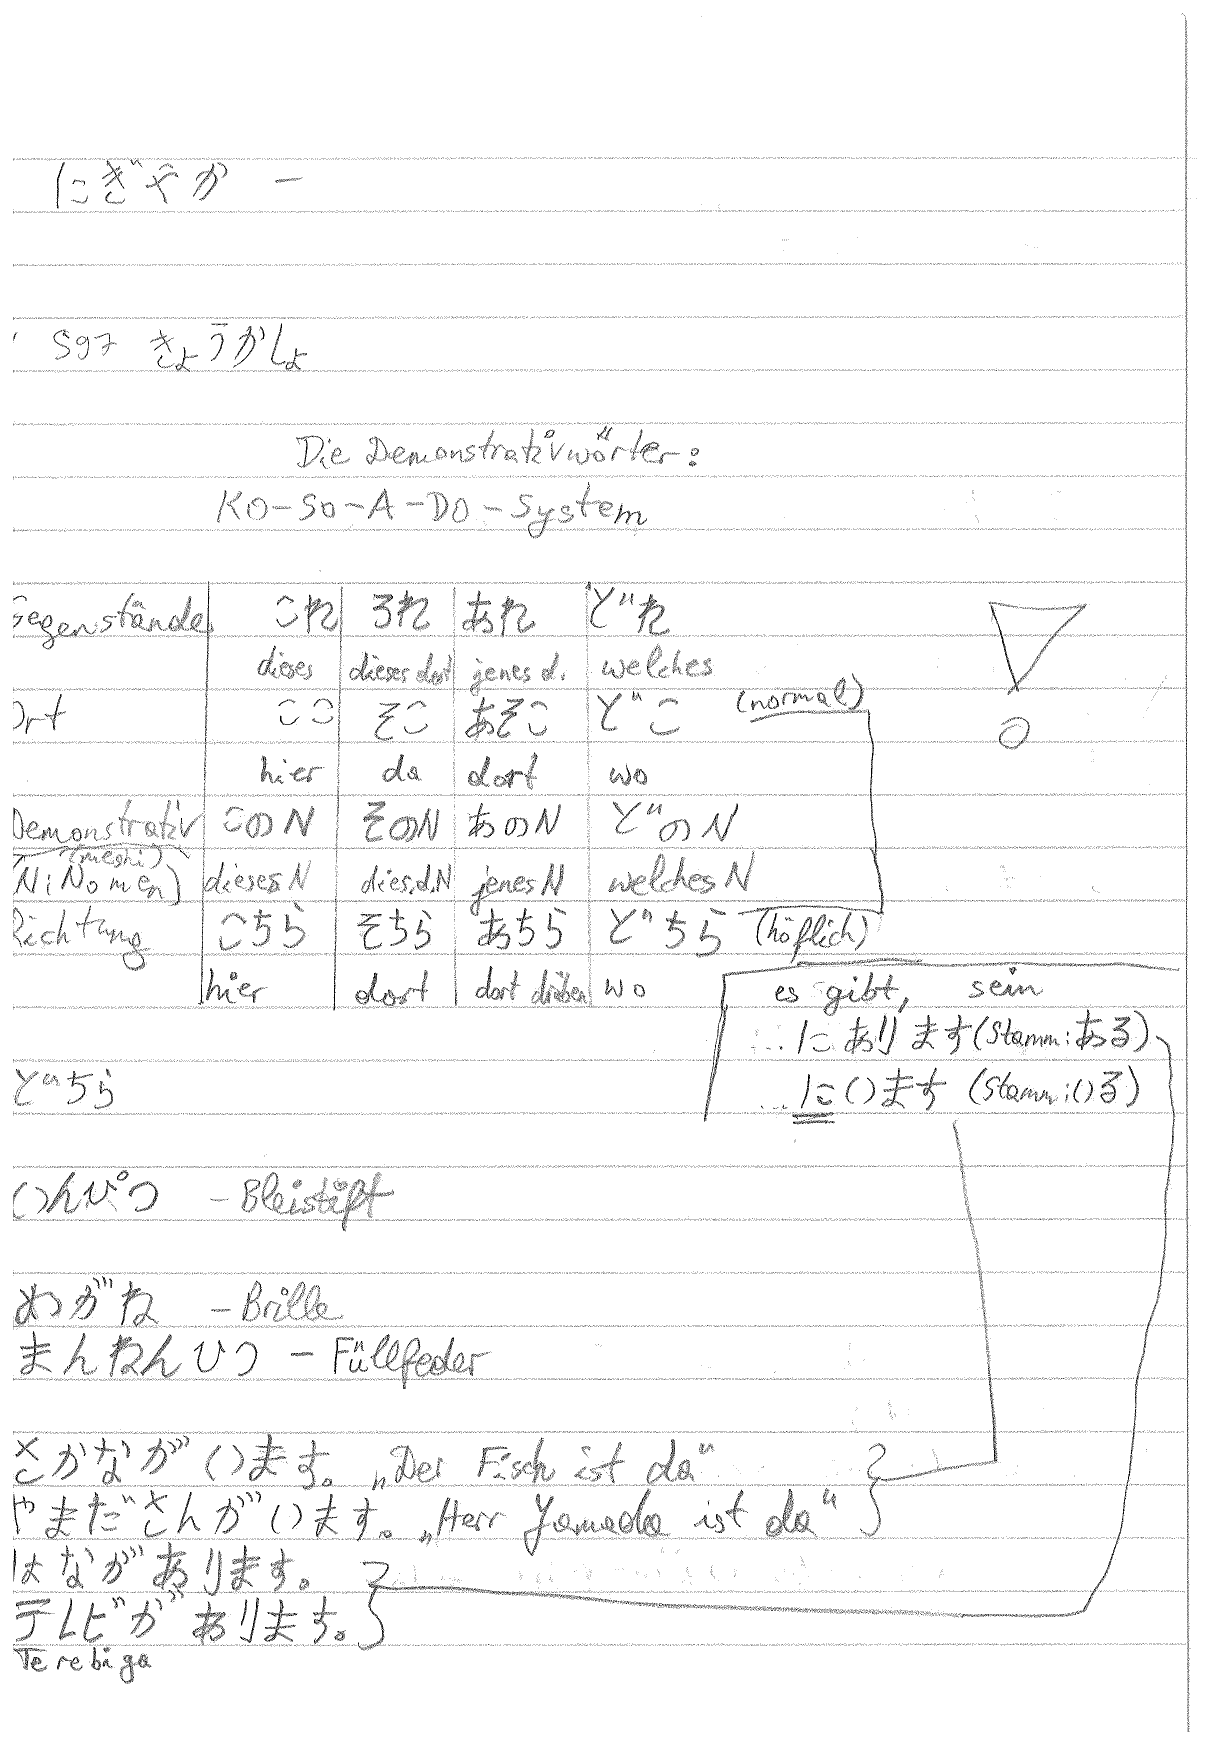 にぎやか －
S97 きょうかしょ
Die Demonstrativwörter:
KO-SO-A-DO-System
Gegenstände これ それ あれ どれ
dieses dieses dort jenes d. welches
Ort ここ そこ あそこ どこ (normal)
hier da dort wo
Demonstrativ このN そのN あのN どのN
(meshi)
(N:Nomen) dieses N dies.d.N jenes N welches N
Richtung こちら そちら あちら どちら (höflich)
hier dort dort drüben wo
es gibt, sein
...にあります(Stamm:ある)
...にいます (Stamm:いる)
どちら
いんぴつ - Bleistift
めがね - Brille
まんねんひつ - Füllfeder
さかながいます。„Der Fisch ist da“
やまださんがいます。„Herr Yamada ist da“
はながあります。
テレビがありまち。
Terebiga